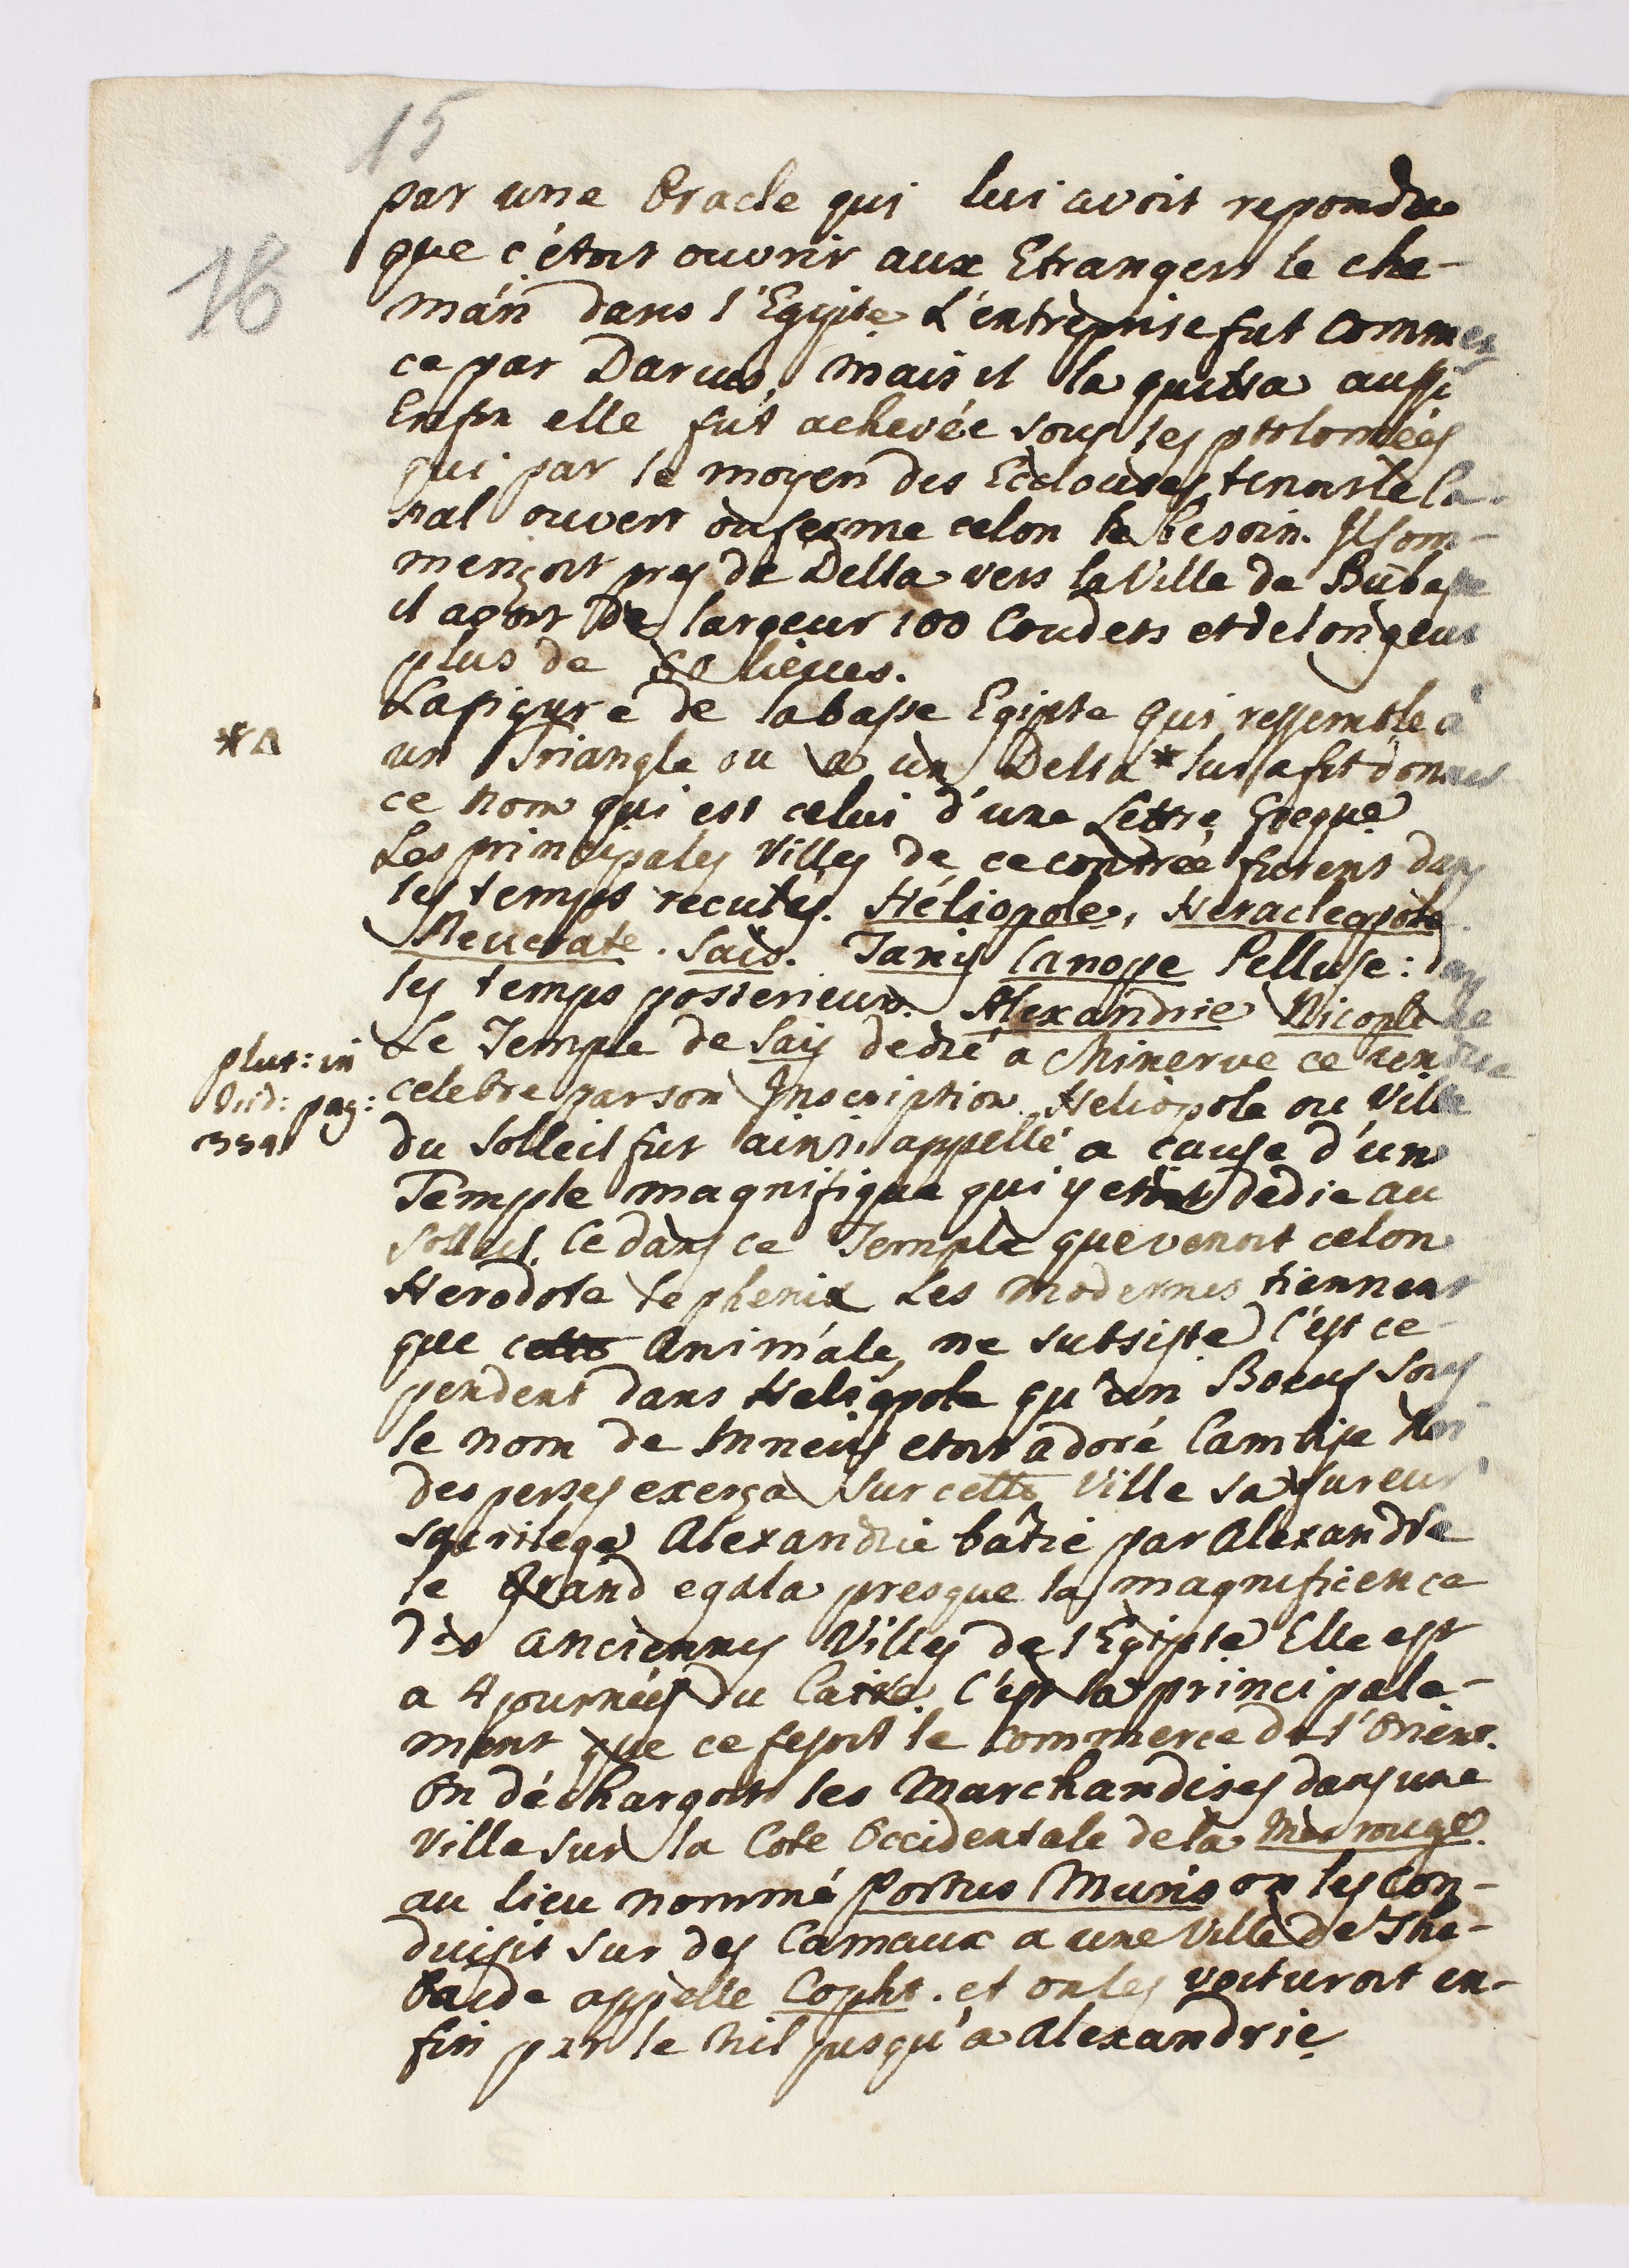 15
16
par une Oracle qui lui avoit repondu
que c'étoit ouvrir aux Etrangers le che-
man dans l'Egipte L'entreprise fut commen
ce par Darius, mais il la quitta aussi
Enfin elle fut achevée sous les ptolomées
qui par le moyen des Ecclouses tenoit le Ca-
nal ouvert ou ferme celon le besoin. Il com-
mençoit pres de Delta vers la Ville de Bubaste
il avoit de largeur 100 Coudets et de longeur
plus de 50 lieues.
La figure de la basse Egipte qui ressemble à
*Δ
un Triangle ou a un Delta * lui a fit donner
ce nom qui est celui d'une Lettre Greque
Les principales Villes de ce contrée furent dans
les temps reculés. Héliopole, Heracleopole
Neucrate. Sais. Tanis Canope Pelluse: dans
les temps posterieurs. Alexandrie Nicople
Le Temple de Sais dedié a Minerve ce rendre
plut: in
Osid: pag:
354
celebre par son Inscription Heliopole ou Ville
du Solleil fut ainsi appellé a cause d'un
Temple magnifique qui y etoit dedie au
Solleil. Ce dans ce Temple que venoit celon
Herodote le phenix Les modernes tiennent
que cette Animale, ne subsiste C'est ce-
pendent dans Heliopole qu'un Boeuf sous
le nom de Mneuis etoit adoré Cambise Roi
des perses exerça sur cette Ville sa fureur
sacrilege Alexandrie bâtie par Alexandre
le Grand egala presque la magnificence
dès anciennes Villes de l'Egipte Elle est
a 4 journées du Caire. C'est la principale-
ment que ce fesoit le commerce de l'Orient.
On déchargoit les Marchandises dans une
Ville sur la Cote Occidentale de la Mer rouge
au lieu nommé Portus Muris on les con-
duisit sur des Camaux a une Ville de The-
baide appelle Copht. et on les voituroit en-
fin par le Nil jusqu'a Alexandrie